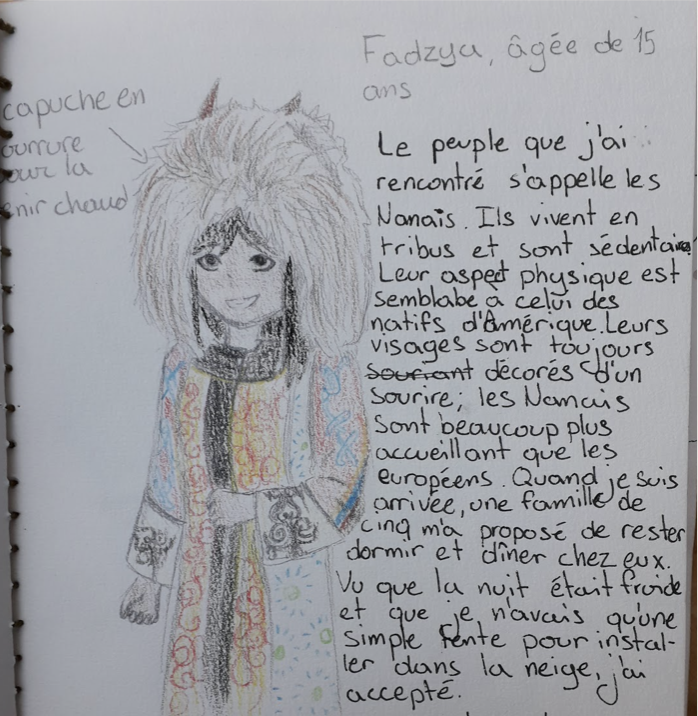 Fadzya, âgée de 15
ans
capuche en
ourrure
our la
enir chaud
Le peuple que j'ai
rencontré s'appelle les
Nanais. Ils vivent en
tribus et sont sédentaires
Leur aspect physique est
semblabe à celui des
natifs d'Amérique. Leurs
visages sont toujours
souriant décorés d'un
sourire; les Nanais
sont beaucoup plus
accueillant que les
européens. Quand je suis
arrivée, une famille de
cinq m'a proposé de rester
dormir et dîner chez eux.
Vu que la nuit était froide
et que je n'avais qu'une
simple tente pour instal-
ler dans la neige, j'ai
accepté.